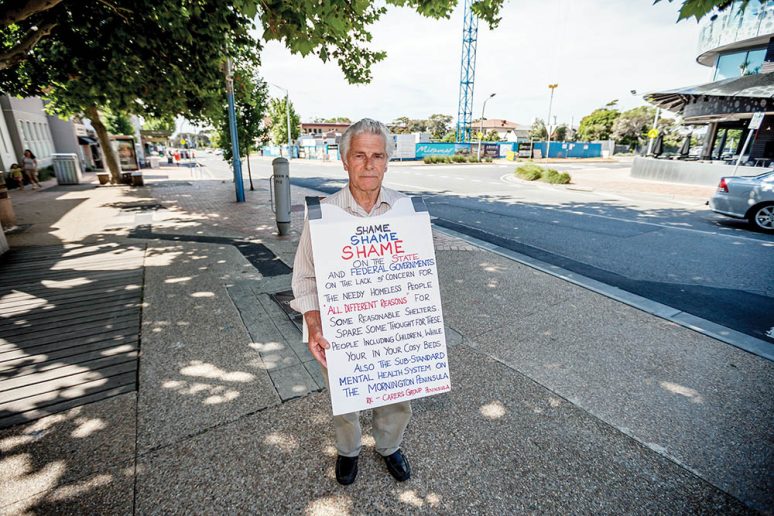 SHAME
SHAME
SHAME
ON THE STATE
AND FEDERAL GOVERNMENTS
ON THE LACK OF CONCERN FOR
THE NEEDY HOMELESS PEOPLE
"ALL DIFFERENT REASONS" FOR
SOME REASONABLE SHELTERS.
SPARE SOME THOUGHT FOR THESE
PEOPLE INCLUDING CHILDREN, WHILE
YOUR IN YOUR COSY BEDS
ALSO THE SUB-STANDARD
MENTAL HEALTH SYSTEM ON
THE MORNINGTON PENINSULA
RK - CARERS GROUP PENINSULA